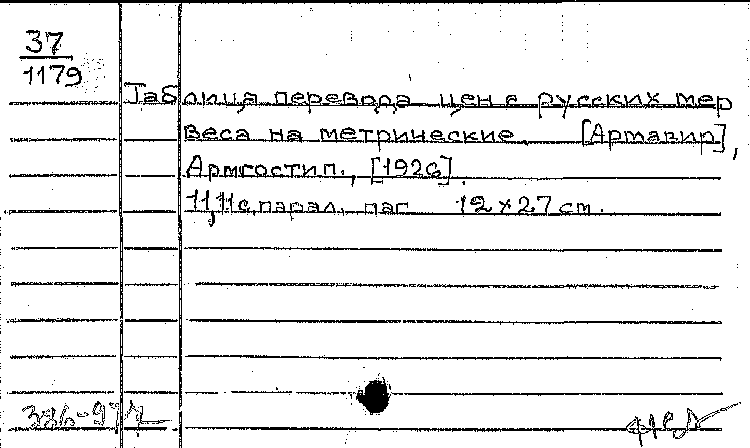 37
1179
Таблица перевода цен с русских мер
веса на метрические. [Армавир],
Армгостип., [1926].
11,11с.парал. паг. 12×27 см.